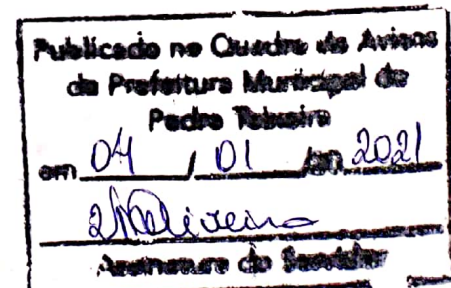 Publicado no Quadro de Avisos
da Prefeitura Municipal de
Pedro Teixeira
em 04 / 01 / 2021
Assinatura do Servidor